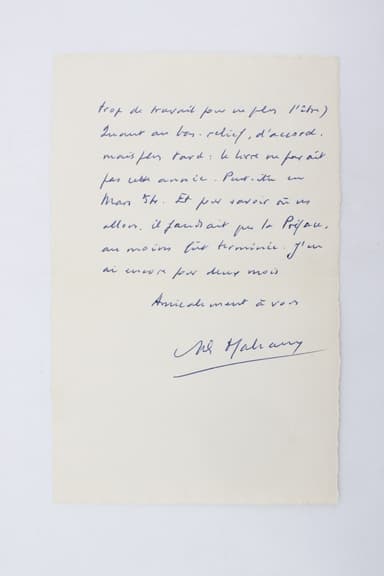 trop de travail pour ne plus l'être)
Quant au bas-relief, d'accord,
mais plus tard : le livre ne paraît
pas cette année. Peut-être en
Mars 54. Et pour savoir où ns
allons, il faudrait que la Préface,
au moins fût terminée. J'en
ai encore pour deux mois
Amicalement à vous
Malraux